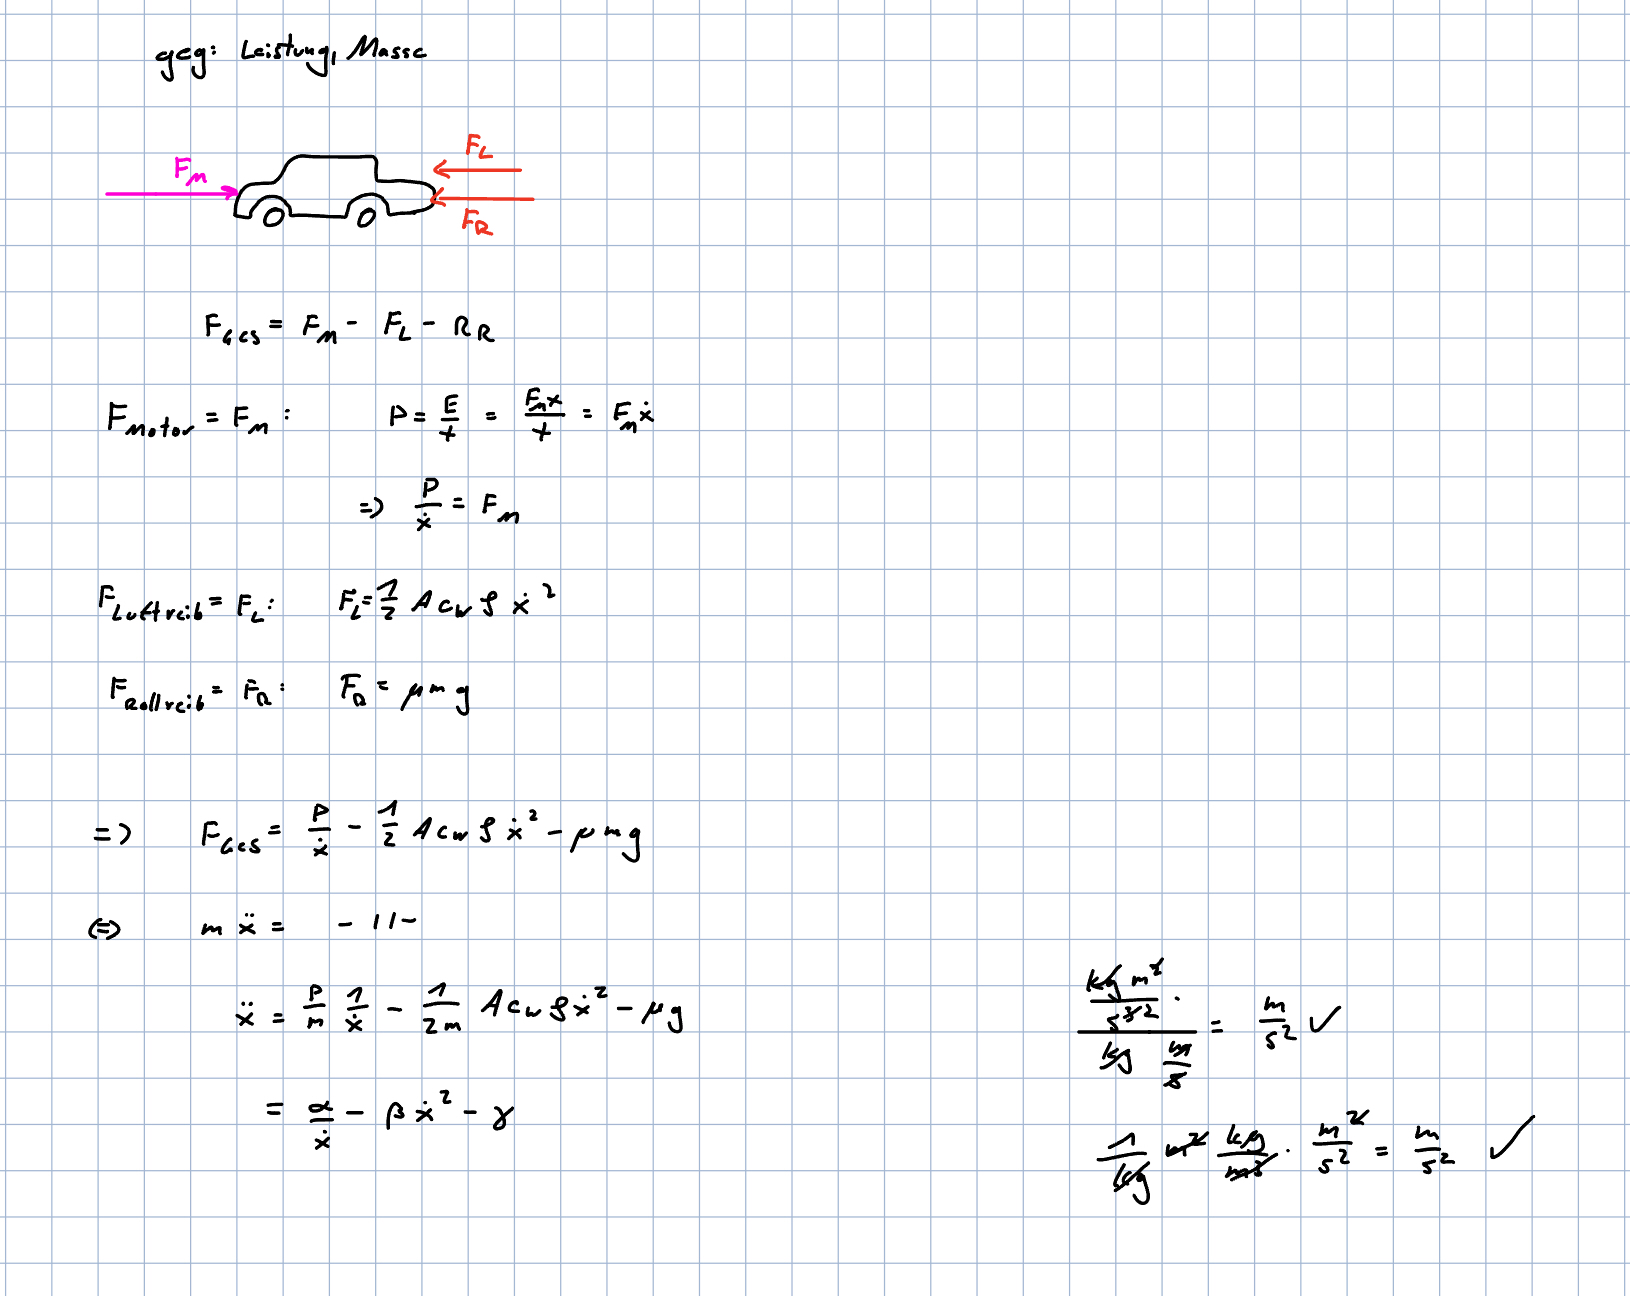 geg: Leistung, Masse
F_M
F_L
F_R
F_Ges = F_M - F_L - R_R
F_Motor = F_M : P = E/t = F_M x/t = F_M ẋ
=> P/ẋ = F_M
F_Luftreib = F_L : F_L = 1/2 A c_w ρ ẋ²
F_Rollreib = F_R : F_R = μ m g
=> F_Ges = P/ẋ - 1/2 A c_w ρ ẋ² - μ m g
<=> m ẍ = - 11 -
ẍ = P/m 1/ẋ - 1/2m A c_w ρ ẋ² - μ g
= α/ẋ - β ẋ² - γ
(kg m²/s³) · / (kg m/s) = m/s² ✓
1/kg m² kg/m³ · m²/s² = m/s² ✓